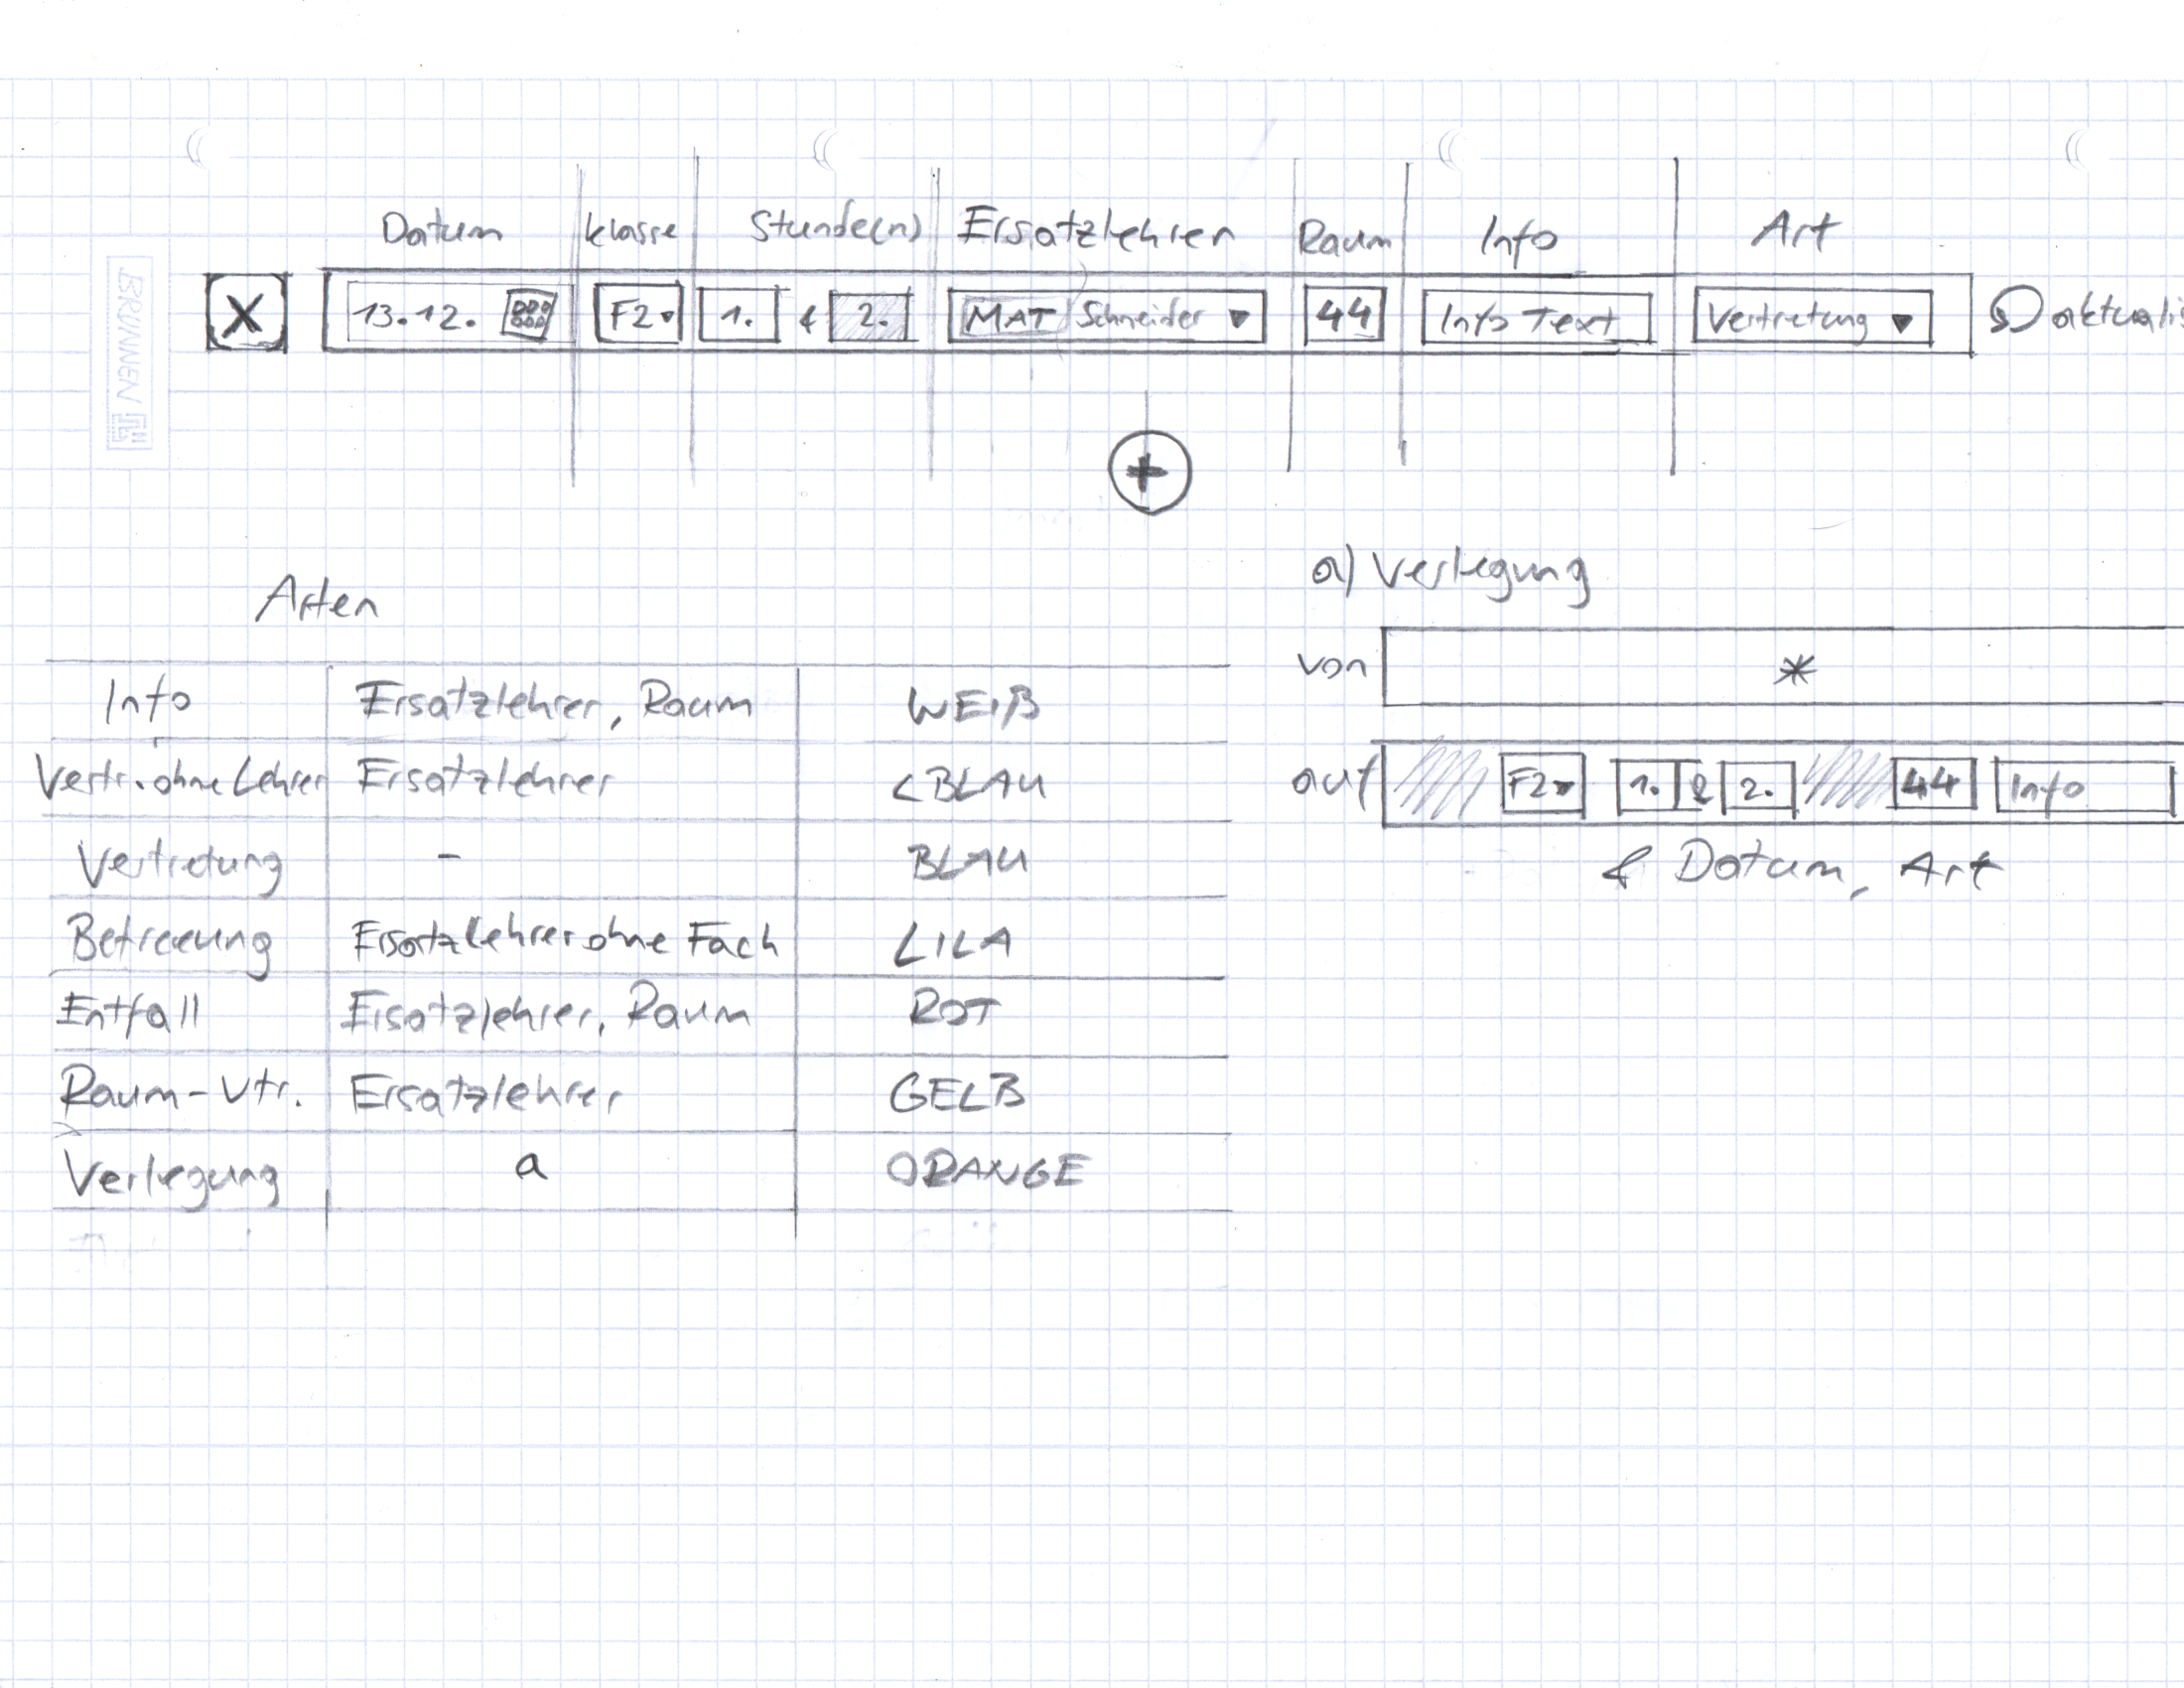 Datum Klasse Stunde(n) Ersatzlehrer Raum Info Art
X 13.12. F2 1. & 2. MAT Schneider 44 Info Text Vertretung aktualis
+
BRUNNEN
Arten
Info Ersatzlehrer, Raum WEIß
Vertr. ohne Lehrer Ersatzlehrer <BLAU
Vertretung - BLAU
Betreuung Ersatzlehrer ohne Fach LILA
Entfall Ersatzlehrer, Raum ROT
Raum-Vtr. Ersatzlehrer GELB
Verlegung a ORANGE
a) Verlegung
von *
auf F2 1. & 2. 44 Info
& Datum, Art